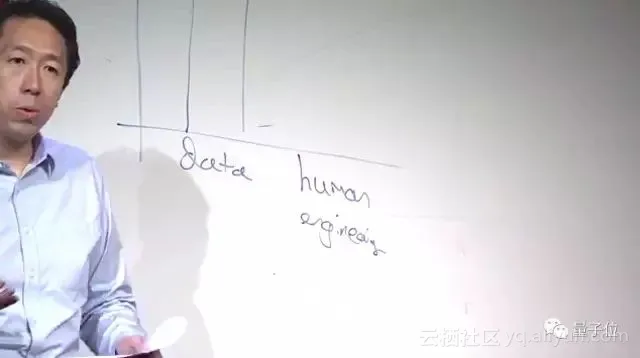 data human
engineering
云栖社区 yq.aliyun.com
量子位